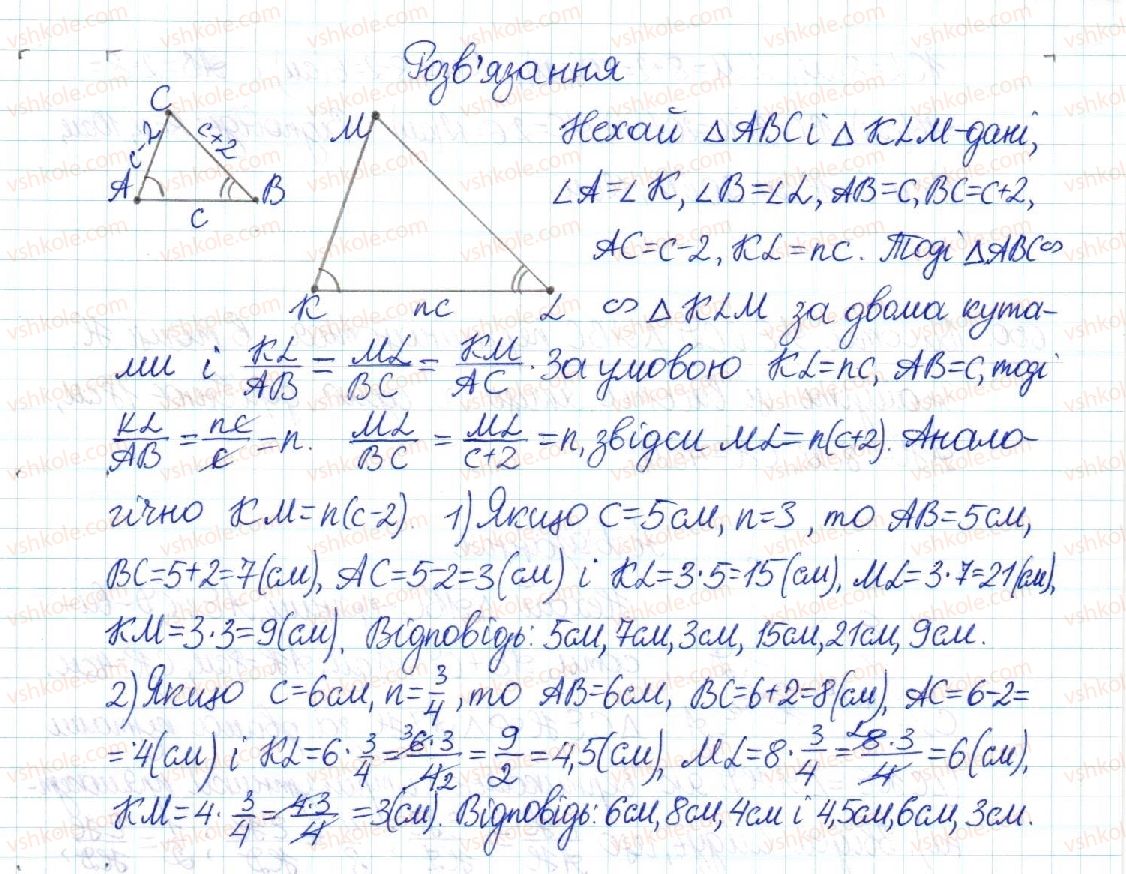 Розв'язання
C M Нехай △ABC і △KLM-дані,
c-2 c+2
A B ∠A=∠K, ∠B=∠L, AB=c, BC=c+2,
c AC=c-2, KL=nc. Тоді △ABC∽
K nc L ∽ △KLM за двома кута-
ми і KL/AB = ML/BC = KM/AC. За умовою KL=nc, AB=c, тоді
KL/AB = nc/c = n. ML/BC = ML/c+2 = n, звідси ML=n(c+2). Анало-
гічно KM=n(c-2). 1) Якщо c=5см, n=3, то AB=5см,
BC=5+2=7(см), AC=5-2=3(см) і KL=3·5=15(см), ML=3·7=21(см),
KM=3·3=9(см). Відповідь: 5см, 7см, 3см, 15см, 21см, 9см.
2) Якщо c=6см, n=3/4, то AB=6см, BC=6+2=8(см), AC=6-2=
=4(см) і KL=6·3/4=6·3/4=9/2=4,5(см), ML=8·3/4=8·3/4=6(см),
KM=4·3/4=4·3/4=3(см). Відповідь: 6см, 8см, 4см і 4,5см, 6см, 3см.
vshkole.com